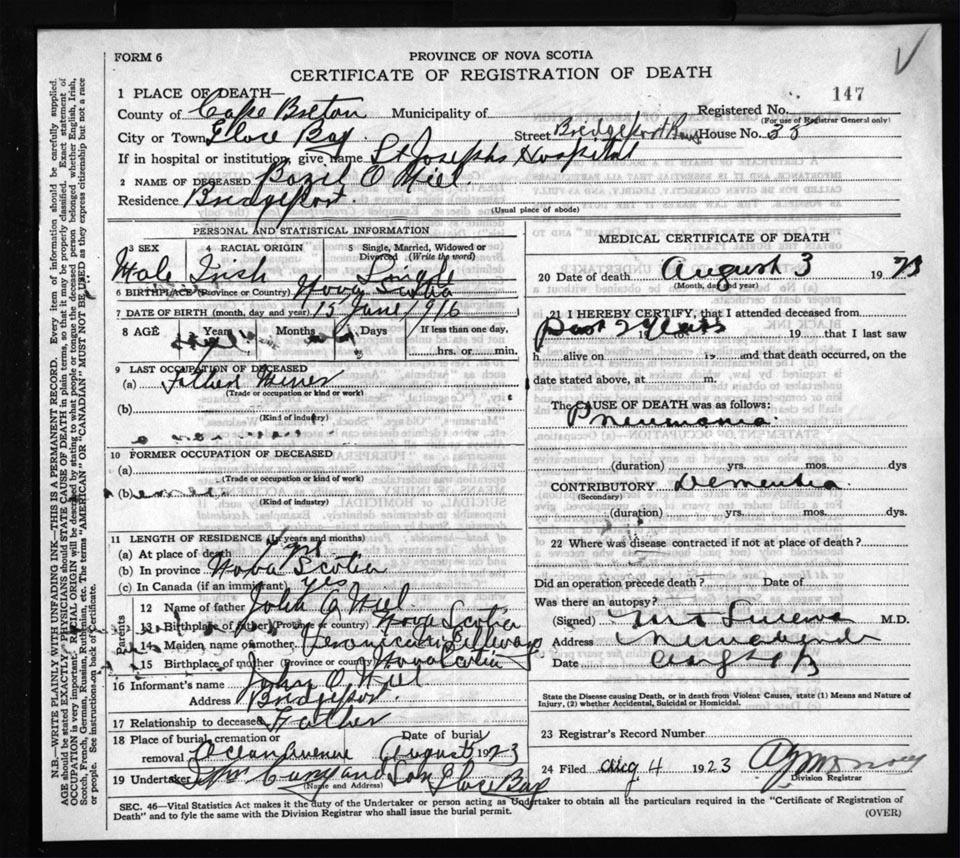 FORM 6
PROVINCE OF NOVA SCOTIA
CERTIFICATE OF REGISTRATION OF DEATH
1 PLACE OF DEATH—
County of Cape Breton Municipality of Registered No. 147
(For use of Registrar General only)
City or Town Glace Bay. Street Bridgeport House No. 33
If in hospital or institution, give name St Josephs Hospital
2 NAME OF DECEASED Bazil O'Niel.
Residence Bridgeport.
(Usual place of abode)
PERSONAL AND STATISTICAL INFORMATION
3 SEX 4 RACIAL ORIGIN Single, Married, Widowed or
Divorced (Write the word)
Male Irish Single
6 BIRTHPLACE (Province or Country) Nova Scotia
7 DATE OF BIRTH (month, day and year) 15 June 1916
8 AGE Years Months Days If less than one day,
hrs. or min.
9 LAST OCCUPATION OF DECEASED
(a) Father Miner
(Trade or occupation or kind or work)
(b)
(Kind of industry)
10 FORMER OCCUPATION OF DECEASED
(a)
(Trade or occupation or kind of work)
(b)
(Kind of industry)
11 LENGTH OF RESIDENCE (In years and months)
(a) At place of death
(b) In province Nova Scotia
(c) In Canada (if an immigrant) yes
Parents
12 Name of father John O'Niel
13 Birthplace of father (Province or country) Nova Scotia
14 Maiden name of mother
15 Birthplace of mother (Province or country) Nova Scotia
16 Informant's name John O'Niel
Address Bridgeport
17 Relationship to deceased Father
18 Place of burial, cremation or Date of burial
removal Ocean Avenue August 1923
19 Undertaker and Son Glace Bay
(Name and Address)
MEDICAL CERTIFICATE OF DEATH
20 Date of death August 3 1923
(Month, day and year)
21 I HEREBY CERTIFY, that I attended deceased from
past 2 years 19 that I last saw
h alive on 19 and that death occurred, on the
date stated above, at m.
The CAUSE OF DEATH was as follows:
Pneumonia.
(duration) yrs. mos. dys
CONTRIBUTORY Dementia
(Secondary)
(duration) yrs. mos. dys.
22 Where was disease contracted if not at place of death?
Did an operation precede death? Date of
Was there an autopsy?
(Signed) M.D.
Address
Date
State the Disease causing Death, or in death from Violent Causes, state (1) Means and Nature of
Injury, (2) whether Accidental, Suicidal or Homicidal.
23 Registrar's Record Number
24 Filed Aug 4 1923
Division Registrar
SEC. 46—Vital Statistics Act makes it the duty of the Undertaker or person acting as Undertaker to obtain all the particulars required in the "Certificate of Registration of
Death" and to fyle the same with the Division Registrar who shall issue the burial permit. (OVER)
N.B.—WRITE PLAINLY WITH UNFADING INK—THIS IS A PERMANENT RECORD. Every item of information should be carefully supplied.
AGE should be stated EXACTLY. PHYSICIANS should STATE CAUSE OF DEATH in plain terms, so that it may be properly classified. Exact statement of
OCCUPATION is very important. RACIAL ORIGIN will be described by stating to what people or tongue the deceased person belonged whether English, Irish,
Scotch, French, German, Russian, Ruthenian, etc. The terms "AMERICAN" OR "CANADIAN" MUST NOT BE USED as they express citizenship but not a race
or people. See instructions on back of Certificate.